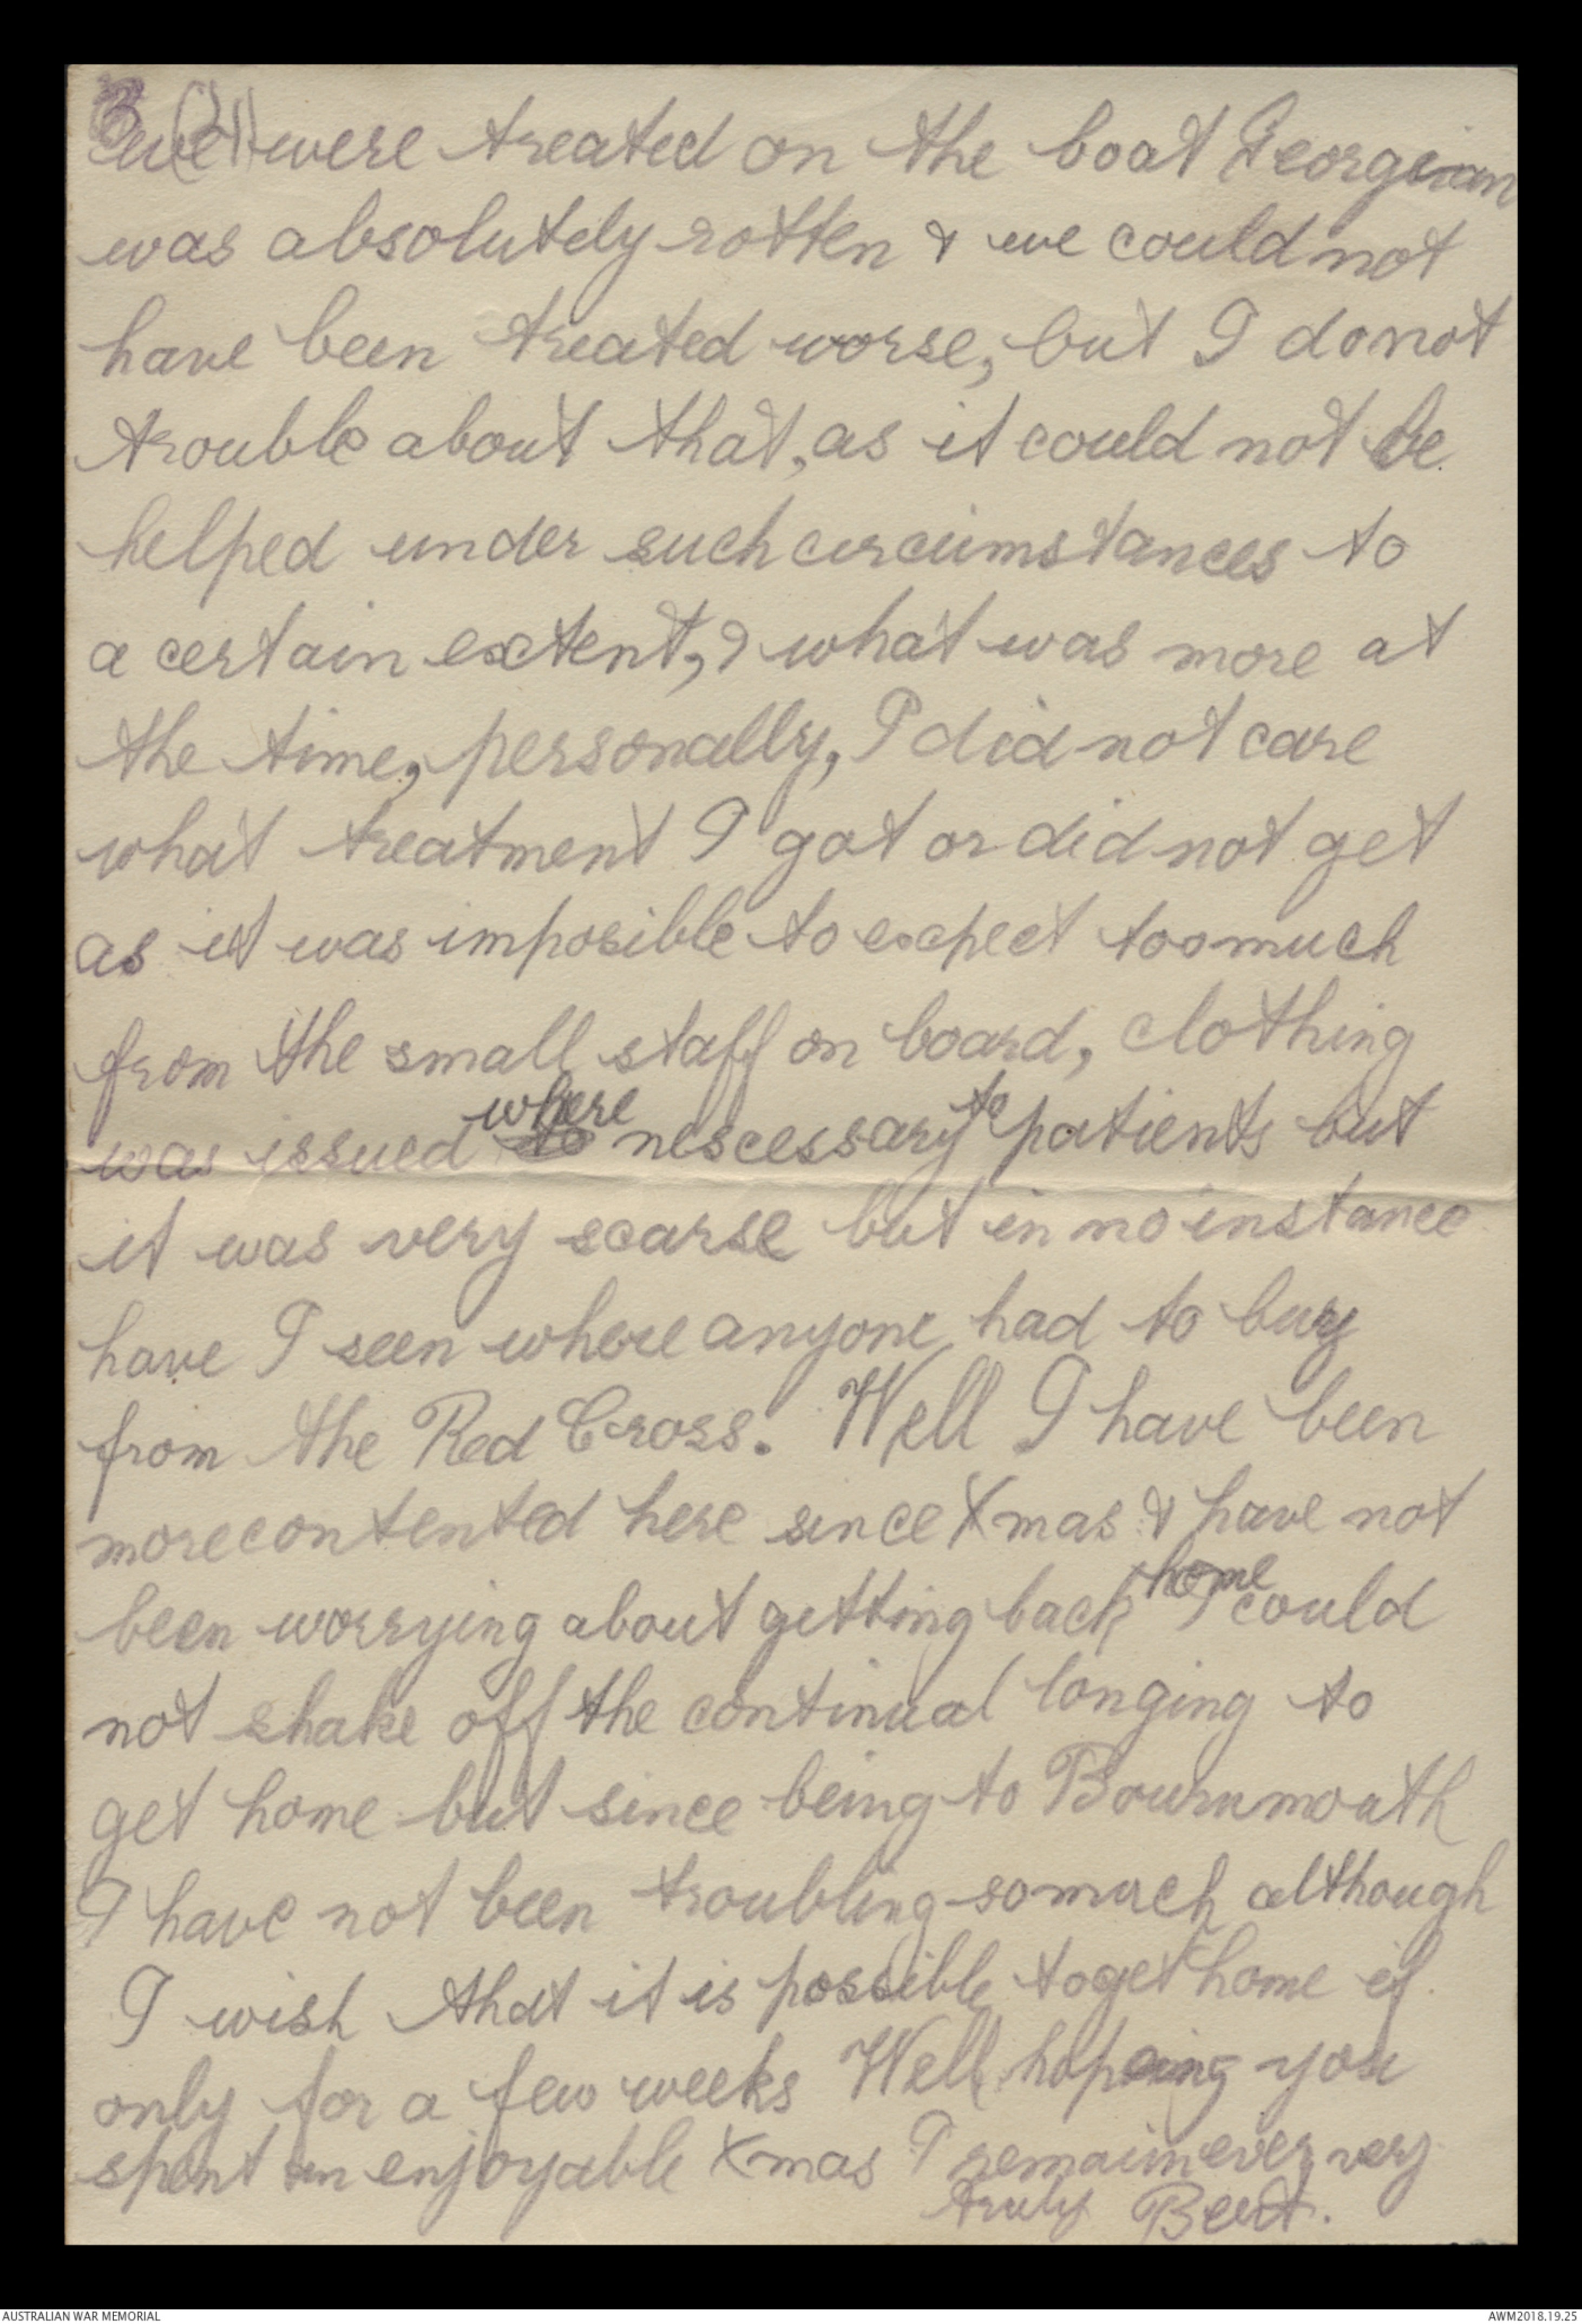 3 (4)
we were treated on the boat Georgian
was absolutely rotten & we could not
have been treated worse, but I do not
trouble about that, as it could not be
helped under such circumstances to
a certain extent, & what was more at
the time, personally, I did not care
what treatment I got or did not get
as it was imposible to expect too much
from the small staff on board, clothing
was issued where nescessary to patients but
it was very scarse but in no instance
have I seen where anyone had to buy
from the Red Cross. Well I have been
more contented here since Xmas & have not
been worrying about getting back home I could
not shake off the continual longing to
get home but since being to Bournmouth
I have not been troubling so much although
I wish that it is possible to get home if
only for a few weeks Well hopeing you
spent an enjoyable Xmas I remain ever very
truly Bert.
AUSTRALIAN WAR MEMORIAL
AWM2018.19.25